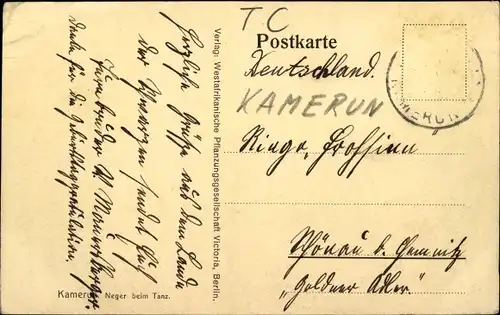 TC
Postkarte
Deutschland.
KAMERUN
KAMERUN
Herzliche Grüße aus dem Lande
der Schwarzen sendet Euch
danke für die Geburtstagsgratulation.
Verlag: Westafrikanische Pflanzungsgesellschaft Victoria, Berlin.
Schönau b. Chemnitz
„Goldner Adler."
Kamerun. Neger beim Tanz.